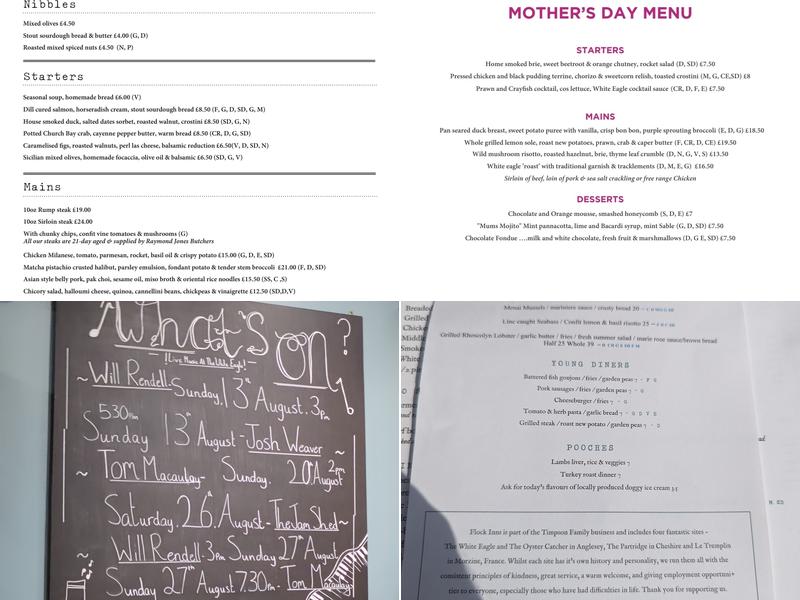 Nibbles
Mixed olives £4.50
Stout sourdough bread & butter £4.00 (G, D)
Roasted mixed spiced nuts £4.50 (N, P)
Starters
Seasonal soup, homemade bread £6.00 (V)
Dill cured salmon, horseradish cream, stout sourdough bread £8.50 (F, G, D, SD, G, M)
House smoked duck, salted dates sorbet, roasted walnut, crostini £8.50 (SD, G, N)
Potted Church Bay crab, cayenne pepper butter, warm bread £8.50 (CR, D, G, SD)
Caramelised figs, roasted walnuts, perl las cheese, balsamic reduction £6.50(V, D, SD, N)
Sicilian mixed olives, homemade focaccia, olive oil & balsamic £6.50 (SD, G, V)
Mains
10oz Rump steak £19.00
10oz Sirloin steak £24.00
With chunky chips, confit vine tomatoes & mushrooms (G)
All our steaks are 21-day aged & supplied by Raymond Jones Butchers
Chicken Milanese, tomato, parmesan, rocket, basil oil & crispy potato £15.00 (G, D, E, SD)
Matcha pistachio crusted halibut, parsley emulsion, fondant potato & tender stem broccoli £21.00 (F, D, SD)
Asian style belly pork, pak choi, sesame oil, miso broth & oriental rice noodles £15.50 (SS, C ,S)
Chicory salad, halloumi cheese, quinoa, cannellini beans, chickpeas & vinaigrette £12.50 (SD,D,V)
MOTHER'S DAY MENU
STARTERS
Home smoked brie, sweet beetroot & orange chutney, rocket salad (D, SD) £7.50
Pressed chicken and black pudding terrine, chorizo & sweetcorn relish, toasted crostini (M, G, CE,SD) £8
Prawn and Crayfish cocktail, cos lettuce, White Eagle cocktail sauce (CR, D, F, E) £7.50
MAINS
Pan seared duck breast, sweet potato puree with vanilla, crisp bon bon, purple sprouting broccoli (E, D, G) £18.50
Whole grilled lemon sole, roast new potatoes, prawn, crab & caper butter (F, CR, D, CE) £19.50
Wild mushroom risotto, roasted hazelnut, brie, thyme leaf crumble (D, N, G, V, S) £13.50
White eagle 'roast' with traditional garnish & tracklements (D, M, E, G) £16.50
Sirloin of beef, loin of pork & sea salt crackling or free range Chicken
DESSERTS
Chocolate and Orange mousse, smashed honeycomb (S, D, E) £7
"Mums Mojito" Mint pannacotta, lime and Bacardi syrup, mint Sable (G, D, SD) £7.50
Chocolate Fondue ....milk and white chocolate, fresh fruit & marshmallows (D, G E, SD) £7.50
What's on?
!Live Music At The White Eagle!
~Will Rendell-Sunday,13th August.3pm
5.30pm
Sunday 13th August-Josh Weaver
~Tom Macaulay- Sunday. 20th August 2pm
Saturday.26th August-The Jam Shed~
~Will Rendell.3pm Sunday 27th August
Sunday 27th August 7.30pm-Tom Macaulay
Menai Mussels / mariniere sauce / crusty bread 20
Line caught Seabass / Confit lemon & basil risotto 25
Grilled Rhoscolyn Lobster / garlic butter / fries / fresh summer salad / marie rose sauce/brown bread
Half 25 Whole 39
YOUNG DINERS
Battered fish goujons / fries / garden peas 7 - F G
Pork sausages / fries / garden peas 7 - G
Cheeseburger / fries 7 - G
Tomato & herb pasta / garlic bread 7 - G D V E
Grilled steak / roast new potato / garden peas 7 - D
POOCHES
Lambs liver, rice & veggies 7
Turkey roast dinner 7
Ask for today's flavours of locally produced doggy ice cream 3.5
Flock Inns is part of the Timpson Family business and includes four fantastic sites -
The White Eagle and The Oyster Catcher in Anglesey, The Partridge in Cheshire and Le Tremplin
in Morzine, France. Whilst each site has it's own history and personality, we run them all with the
consistent principles of kindness, great service, a warm welcome, and giving employment
ties to everyone, especially those who have had difficulties in life. Thank you for supporting us.